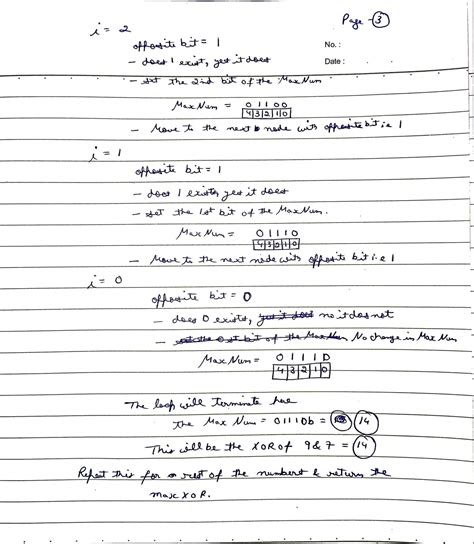 Page - 3
i = 2
opposite bit = 1
No. :
- does 1 exist, yes it does
Date :
- set the 2nd bit of the Max Num
Max Num = 0 1 1 0 0
4 3 2 1 0
- Move to the next node with opposite bit i.e 1
i = 1
opposite bit = 1
- does 1 exists, yes it does
- set the 1st bit of the Max Num.
Max Num = 0 1 1 1 0
4 3 2 1 0
- Move to the next node with opposite bit i.e 1
i = 0
opposite bit = 0
- does 0 exists, yes it does no it does not
- set the 0 st bit of the Max Num No change in Max Num
Max Num = 0 1 1 1 0
4 3 2 1 0
The loop will terminate here
the Max Num = 01110b = 14
This will be the XOR of 9 & 7 = 14
Repeat this for rest of the numbers & return the
max XOR.